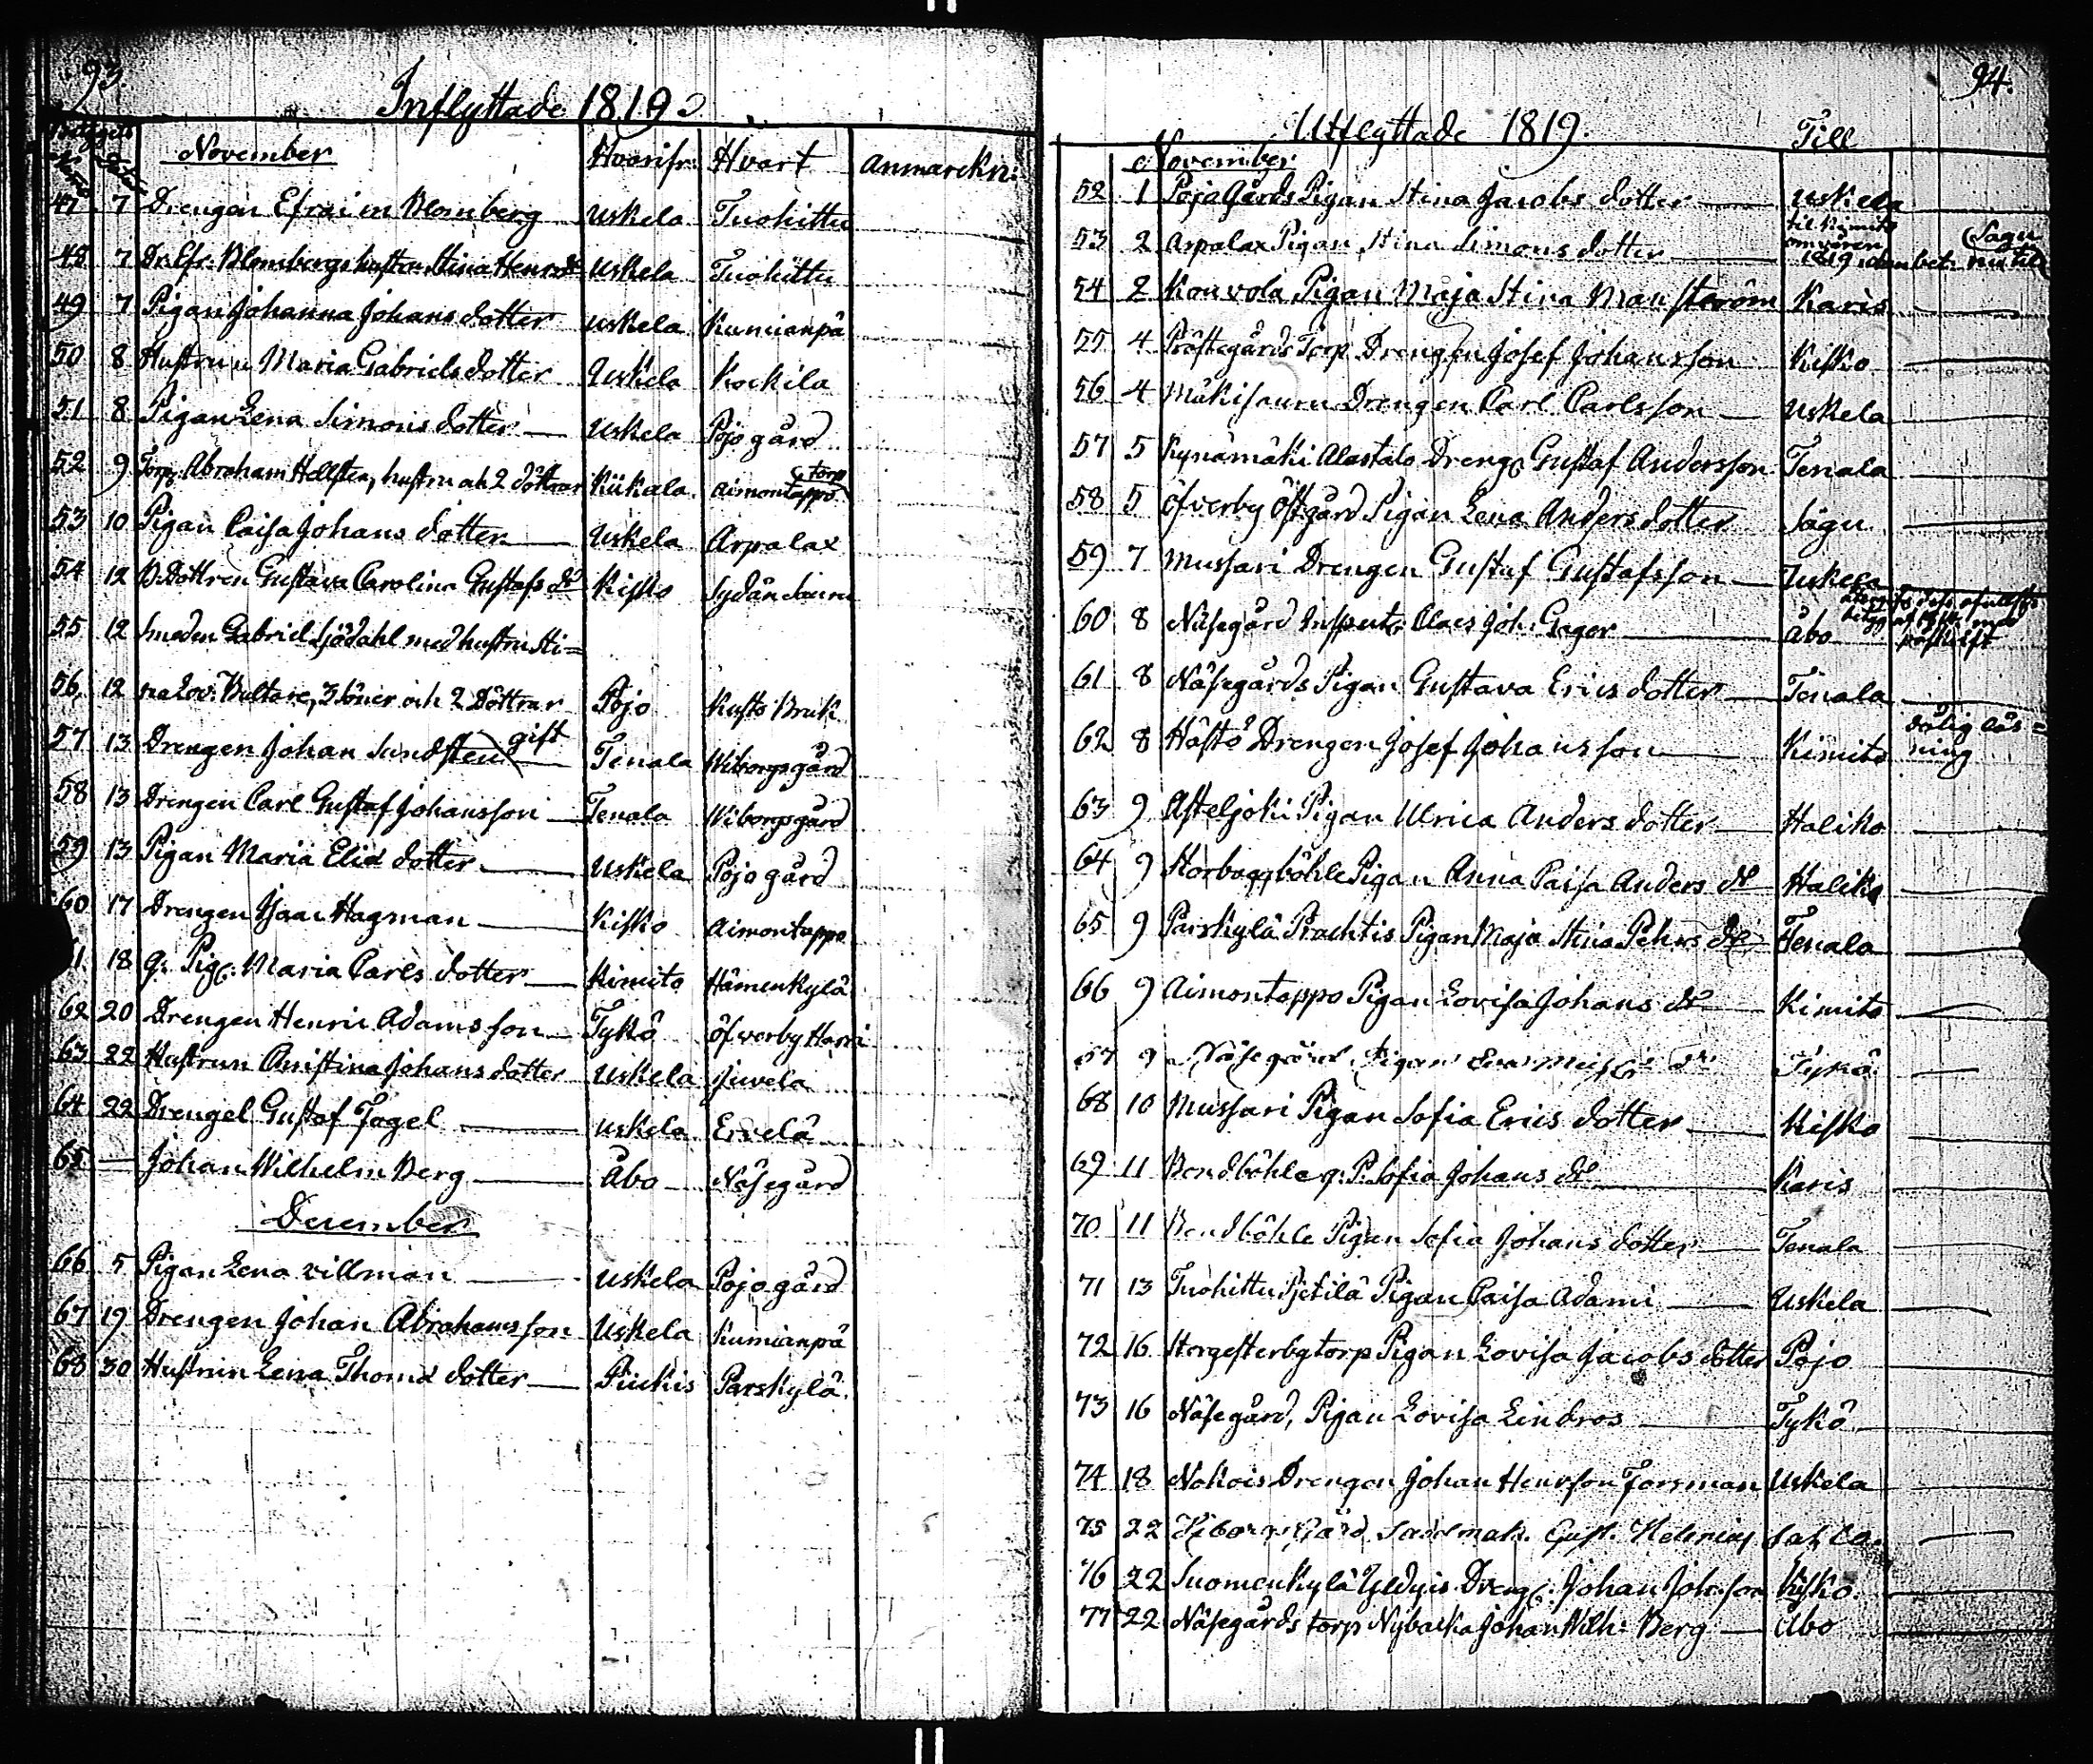 93.
Inflyttade 1819.
November Hvarifr: Hvart Anmärckn:
47 7 Drengen Efraim Blomberg Uskela Tuohittu
48 7 Dr. Efr. Blombergs hustru Stina Henr. dr Uskela Tuohittu
49 7 Pigan Johanna Johans dotter Uskela Kumianpä
50 8 Hustrun Maria Gabriels dotter Uskela Kockila
51 8 Pigan Lena Simons dotter Uskela Pojo gård
52 9 Torp. Abraham Hellsten, hustru och 2 döttrar Kiikala Aimontappo torp
53 10 Pigan Caisa Johans dotter Uskela Arpalax
54 12 B. Dottren Gustava Carolina Gustafs dr Kisko Sydän Sauru
55 12 Smeden Gabriel Sjödahl med hustru Sti=
56 12 na Lov. Bultare, 3 söner och 2 Döttrar Pojo Kusto Bruk
57 13 Drengen Johan Sundsten gift Tenala Wiborgsgård
58 13 Drengen Carl Gustaf Johansson Tenala Wiborgsgård
59 13 Pigan Maria Elia dotter Uskela Pojo gård
60 17 Drengen Isaac Hagman Kisko Aimontappo
61 18 g. Pig. Maria Carls dotter Kimito Hämenkylä
62 20 Drengen Henric Adamsson Tykö Öfverby Harri
63 22 Hustrun Christina Johans dotter Uskela Juvela
64 22 Drengel Gustaf Fogel Uskela Ervelä
65 — Johan Wilhelm Berg Åbo Näsegård
December
66 5 Pigan Lena Villman Uskela Pojo gård
67 19 Drengen Johan Abrahamsson Uskela Kumianpä
68 30 Hustrun Lena Thoma dotter Piickis Parskylä
94.
Utflyttade 1819. Till
November
52 1 Pojo Gårds Pigan Stina Jacobs dotter Uskela
53 2 Arpalax Pigan Stina Simons dotter til Kimito om våren 1819 utan bet. nu till Sagu
54 2 Kouvola Pigan Maja Stina Manström Karis
55 4 Prästegårds Torp. Drengen Josef Johansson Kisko
56 4 Mäkisauru Drengen Carl Carlsson Uskela
57 5 Kynämäki Alastalo Dreng. Gustaf Andersson Tenala
58 5 Öfverby Östgård Pigan Lena Anders dotter Sagu
59 7 Mussari Drengen Gustaf Gustafsson Uskela
60 8 Näsegård Inspect. Claes Joh. Geger Åbo
61 8 Näsegårds Pigan Gustava Erics dotter Tenala
62 8 Hästö Drengen Josef Johansson Kimito dålig läs=
ning
63 9 Asteljoki Pigan Ulrica Anders dotter Haliko
64 9 Storboggböhle Pigan Anna Caisa Anders dr Haliko
65 9 Parskylä Prachtis Pigan Maja Stina Pehrs dr Tenala
66 9 Aimontappo Pigan Lovisa Johans dr Kimito
57 9 Näsegård Pigan Eva dr Tykö
68 10 Mussari Pigan Sofia Erics dotter Kisko
69 11 Bondböhle g. P. Sofia Johans dr Karis
70 11 Bondböhle Pigan Sofia Johans dotter Tenala
71 13 Tuohittu Pietilä Pigan Caisa Adami Uskela
72 16 Storgesterby torp Pigan Lovisa Jacobs dotter Pojo
73 16 Näsegård, Pigan Lovisa Lindros Tykö
74 18 Nokois Drengen Johan Henrson Forsman Uskela
75 22 Wiborgs Gård Sadelmak. Gust. Helenius
76 22 Suomenkylä Yldyis Dreng. Johan Joh:son Kisko
77 22 Näsegårds torp Nybacka Johan Wilh: Berg Åbo